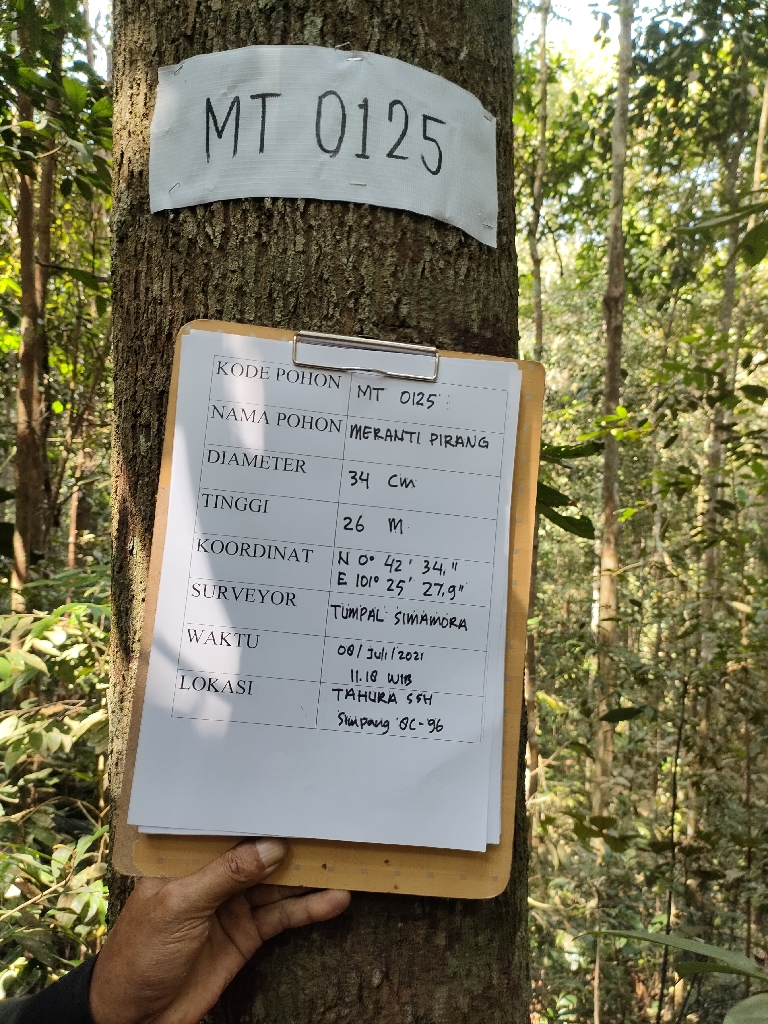 MT 0125
KODE POHON MT 0125
NAMA POHON MERANTI PIRANG
DIAMETER 34 cm
TINGGI 26 M
KOORDINAT N 0° 42' 34,"
E 101° 25' 27,9"
SURVEYOR TUMPAL SIMAMORA
WAKTU 08/Juli/2021
11.18 WIB
LOKASI TAHURA SSH
Simpang GC-96